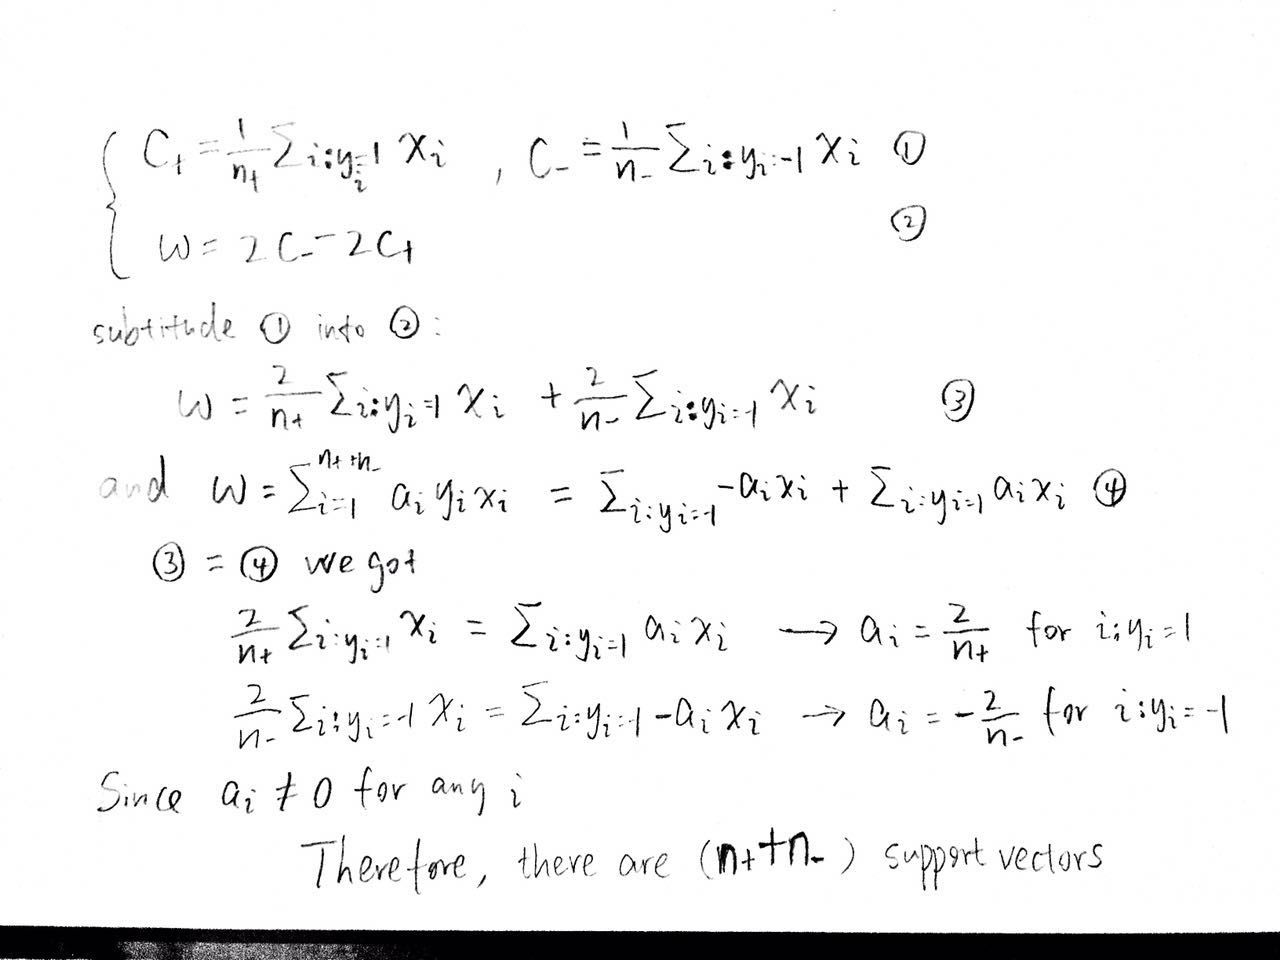 C₊ = 1/n₊ Σ i:yᵢ=1 xᵢ , C₋ = 1/n₋ Σ i:yᵢ=-1 xᵢ ①
w = 2C₋ - 2C₊ ②
substitude ① into ②:
w = 2/n₊ Σ i:yᵢ=1 xᵢ + 2/n₋ Σ i:yᵢ=-1 xᵢ ③
and w = Σ i=1 n₊+n₋ aᵢ yᵢ xᵢ = Σ i:yᵢ=-1 -aᵢxᵢ + Σ i:yᵢ=1 aᵢxᵢ ④
③ = ④ we got
2/n₊ Σ i:yᵢ=1 xᵢ = Σ i:yᵢ=1 aᵢxᵢ → aᵢ = 2/n₊ for i:yᵢ=1
2/n₋ Σ i:yᵢ=-1 xᵢ = Σ i:yᵢ=-1 -aᵢxᵢ → aᵢ = -2/n₋ for i:yᵢ=-1
Since aᵢ ≠ 0 for any i
Therefore, there are (n₊+n₋) support vectors